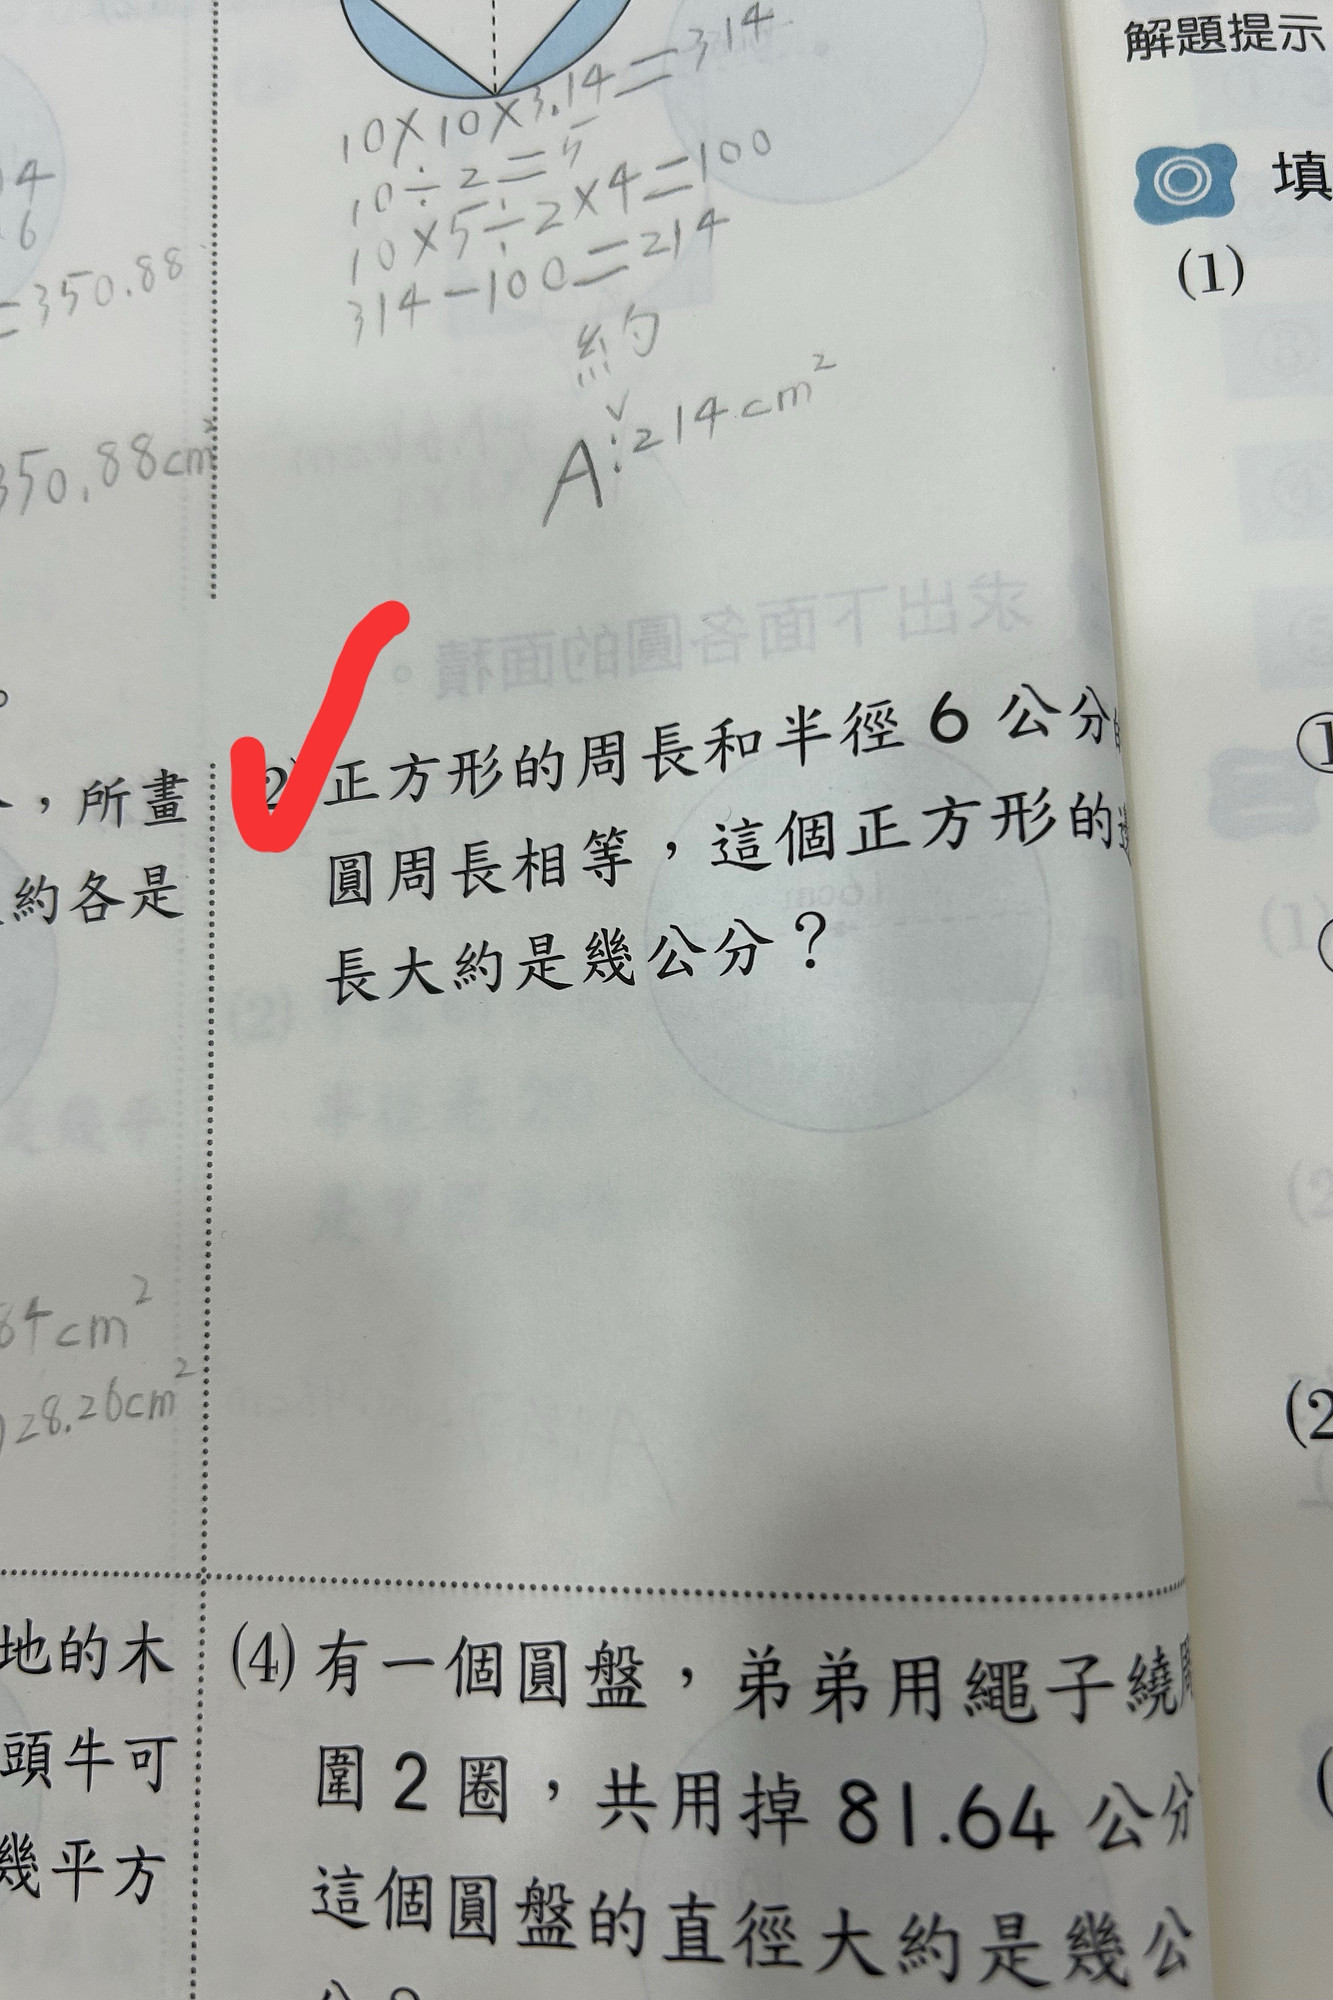 10×10×3.14=314
10÷2=5
10×5÷2×4=100
314-100=214
約
A:214cm²
04
.6
=350.88
350.88cm²
。
,所畫
約各是
64cm²
28.26cm²
(2)正方形的周長和半徑6公分的
圓周長相等,這個正方形的邊
長大約是幾公分?
地的木
頭牛可
幾平方
(4)有一個圓盤,弟弟用繩子繞周
圍2圈,共用掉81.64公分
這個圓盤的直徑大約是幾公
解題提示
填
(1)
①
(2
求出下面各圓的面積。